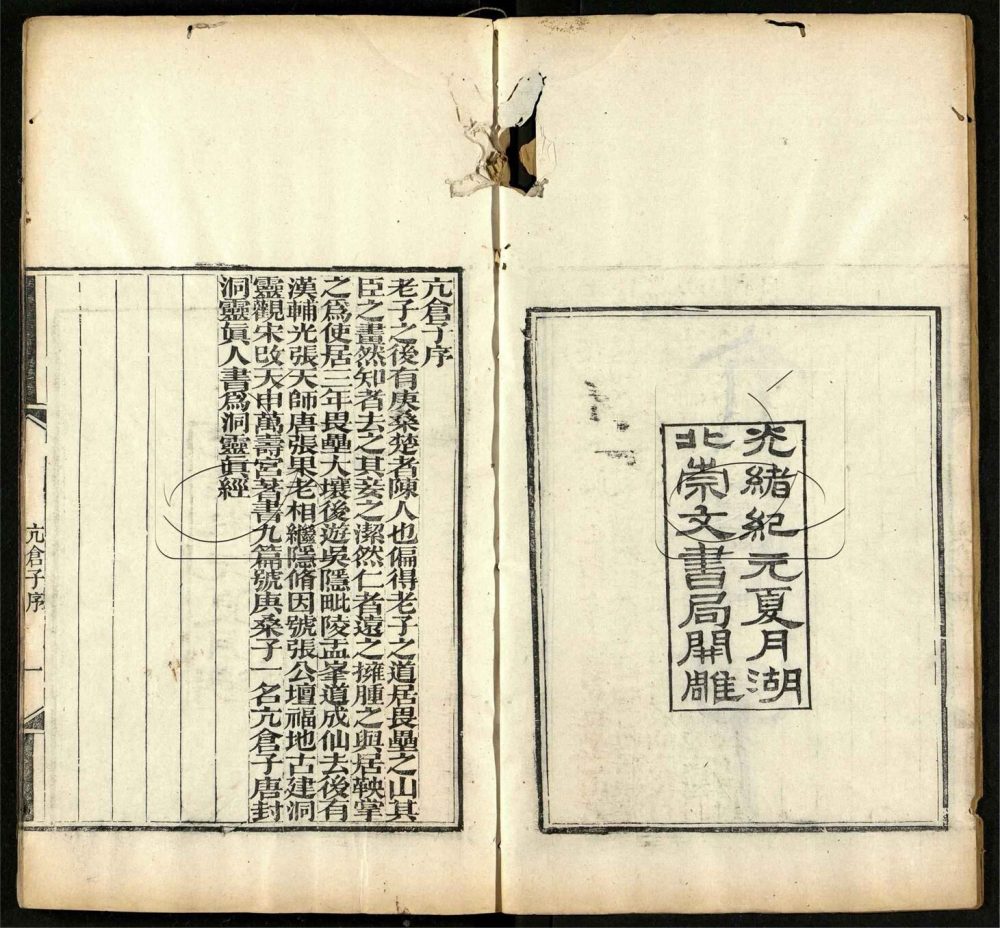 光緒紀元夏月湖
北崇文書局開雕
亢倉子序
老子之後有庚桑楚者陳人也偏得老子之道居畏壘之山其
臣之畫然知者去之其妾之潔然仁者遠之擁腫之與居鞅掌
之爲使居三年畏壘大壤後遊吳隱毗陵孟峯道成仙去後有
漢輔光張天師唐張果老相繼隱脩因號張公壇福地古建洞
靈觀宋改天申萬壽宮著書九篇號庚桑子一名亢倉子唐封
洞靈眞人書爲洞靈眞經
亢倉子序
一